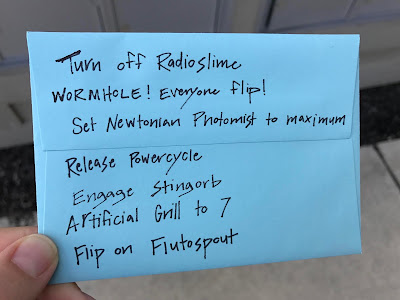 Turn off Radioslime
WORMHOLE! Everyone flip!
Set Newtonian Photomist to maximum
Release Powercycle
Engage Stingorb
Artificial Grill to 7
Flip on Flutospout